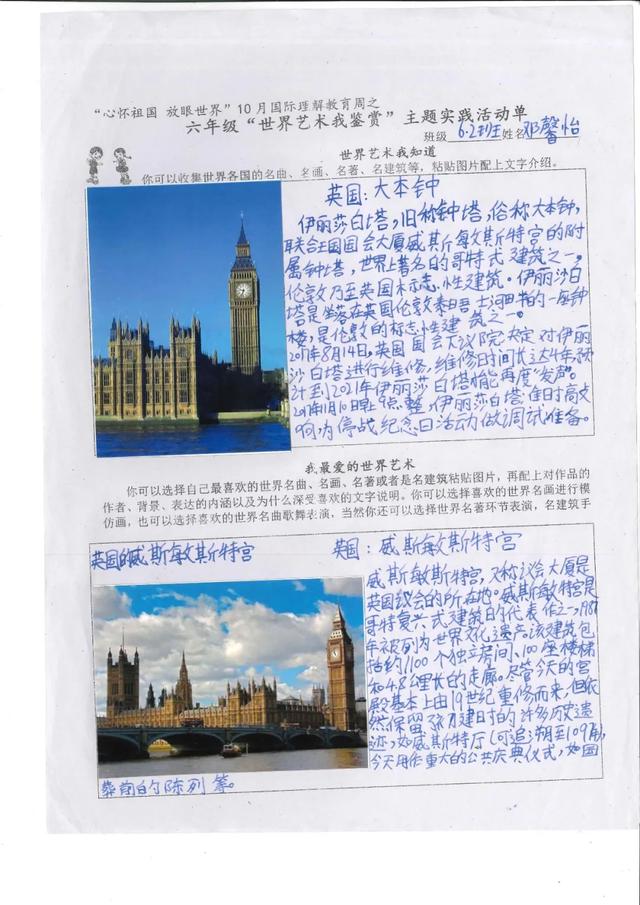 “心怀祖国 放眼世界”10月国际理解教育周之
六年级“世界艺术我鉴赏”主题实践活动单
班级 6.2班 姓名 邓馨怡
世界艺术我知道
你可以收集世界各国的名曲、名画、名著、名建筑等，粘贴图片配上文字介绍。
英国：大本钟
伊丽莎白塔，旧称钟塔，俗称大本钟，
联合王国国会大厦威斯敏斯特宫的附
属钟塔，世界上著名的哥特式建筑之一，
伦敦乃至英国标志性建筑。伊丽沙白
塔是坐落在英国伦敦泰晤士河畔的一座钟
楼，是伦敦的标志性建筑之一。
2017年8月14日，英国国会下议院决定对伊丽
沙白塔进行维修，维修时间长达4年，预
计到2021年伊丽莎白塔才能再度“发声”。
2017年11月10日晚上9点整，伊丽莎白塔准时高文
响，为停战纪念日活动做调试准备。
我最爱的世界艺术
你可以选择自己最喜欢的世界名曲、名画、名著或者是名建筑粘贴图片，再配上对作品的
作者、背景、表达的内涵以及为什么深受喜欢的文字说明。你可以选择喜欢的世界名画进行模
仿画，也可以选择喜欢的世界名曲歌舞表演，当然你还可以选择世界名著环节表演，名建筑手
英国的威斯敏斯特宫
英国：威斯敏斯特宫
威斯敏斯特宫，又称议会大厦是
英国议会的所在地。威斯敏特宫是
哥特复兴式建筑的代表作之一，1987
年被列为世界文化遗产该建筑包
括约1100个独立房间、100座楼梯
和4.8公里长的走廊。尽管今天的宫
殿基本上由19世纪重修而来，但依
然保留了初建时的许多历史遗
迹，如威斯特厅（可追溯至109
今天用作重大的公共庆典仪式，如国
葬前的陈列等。